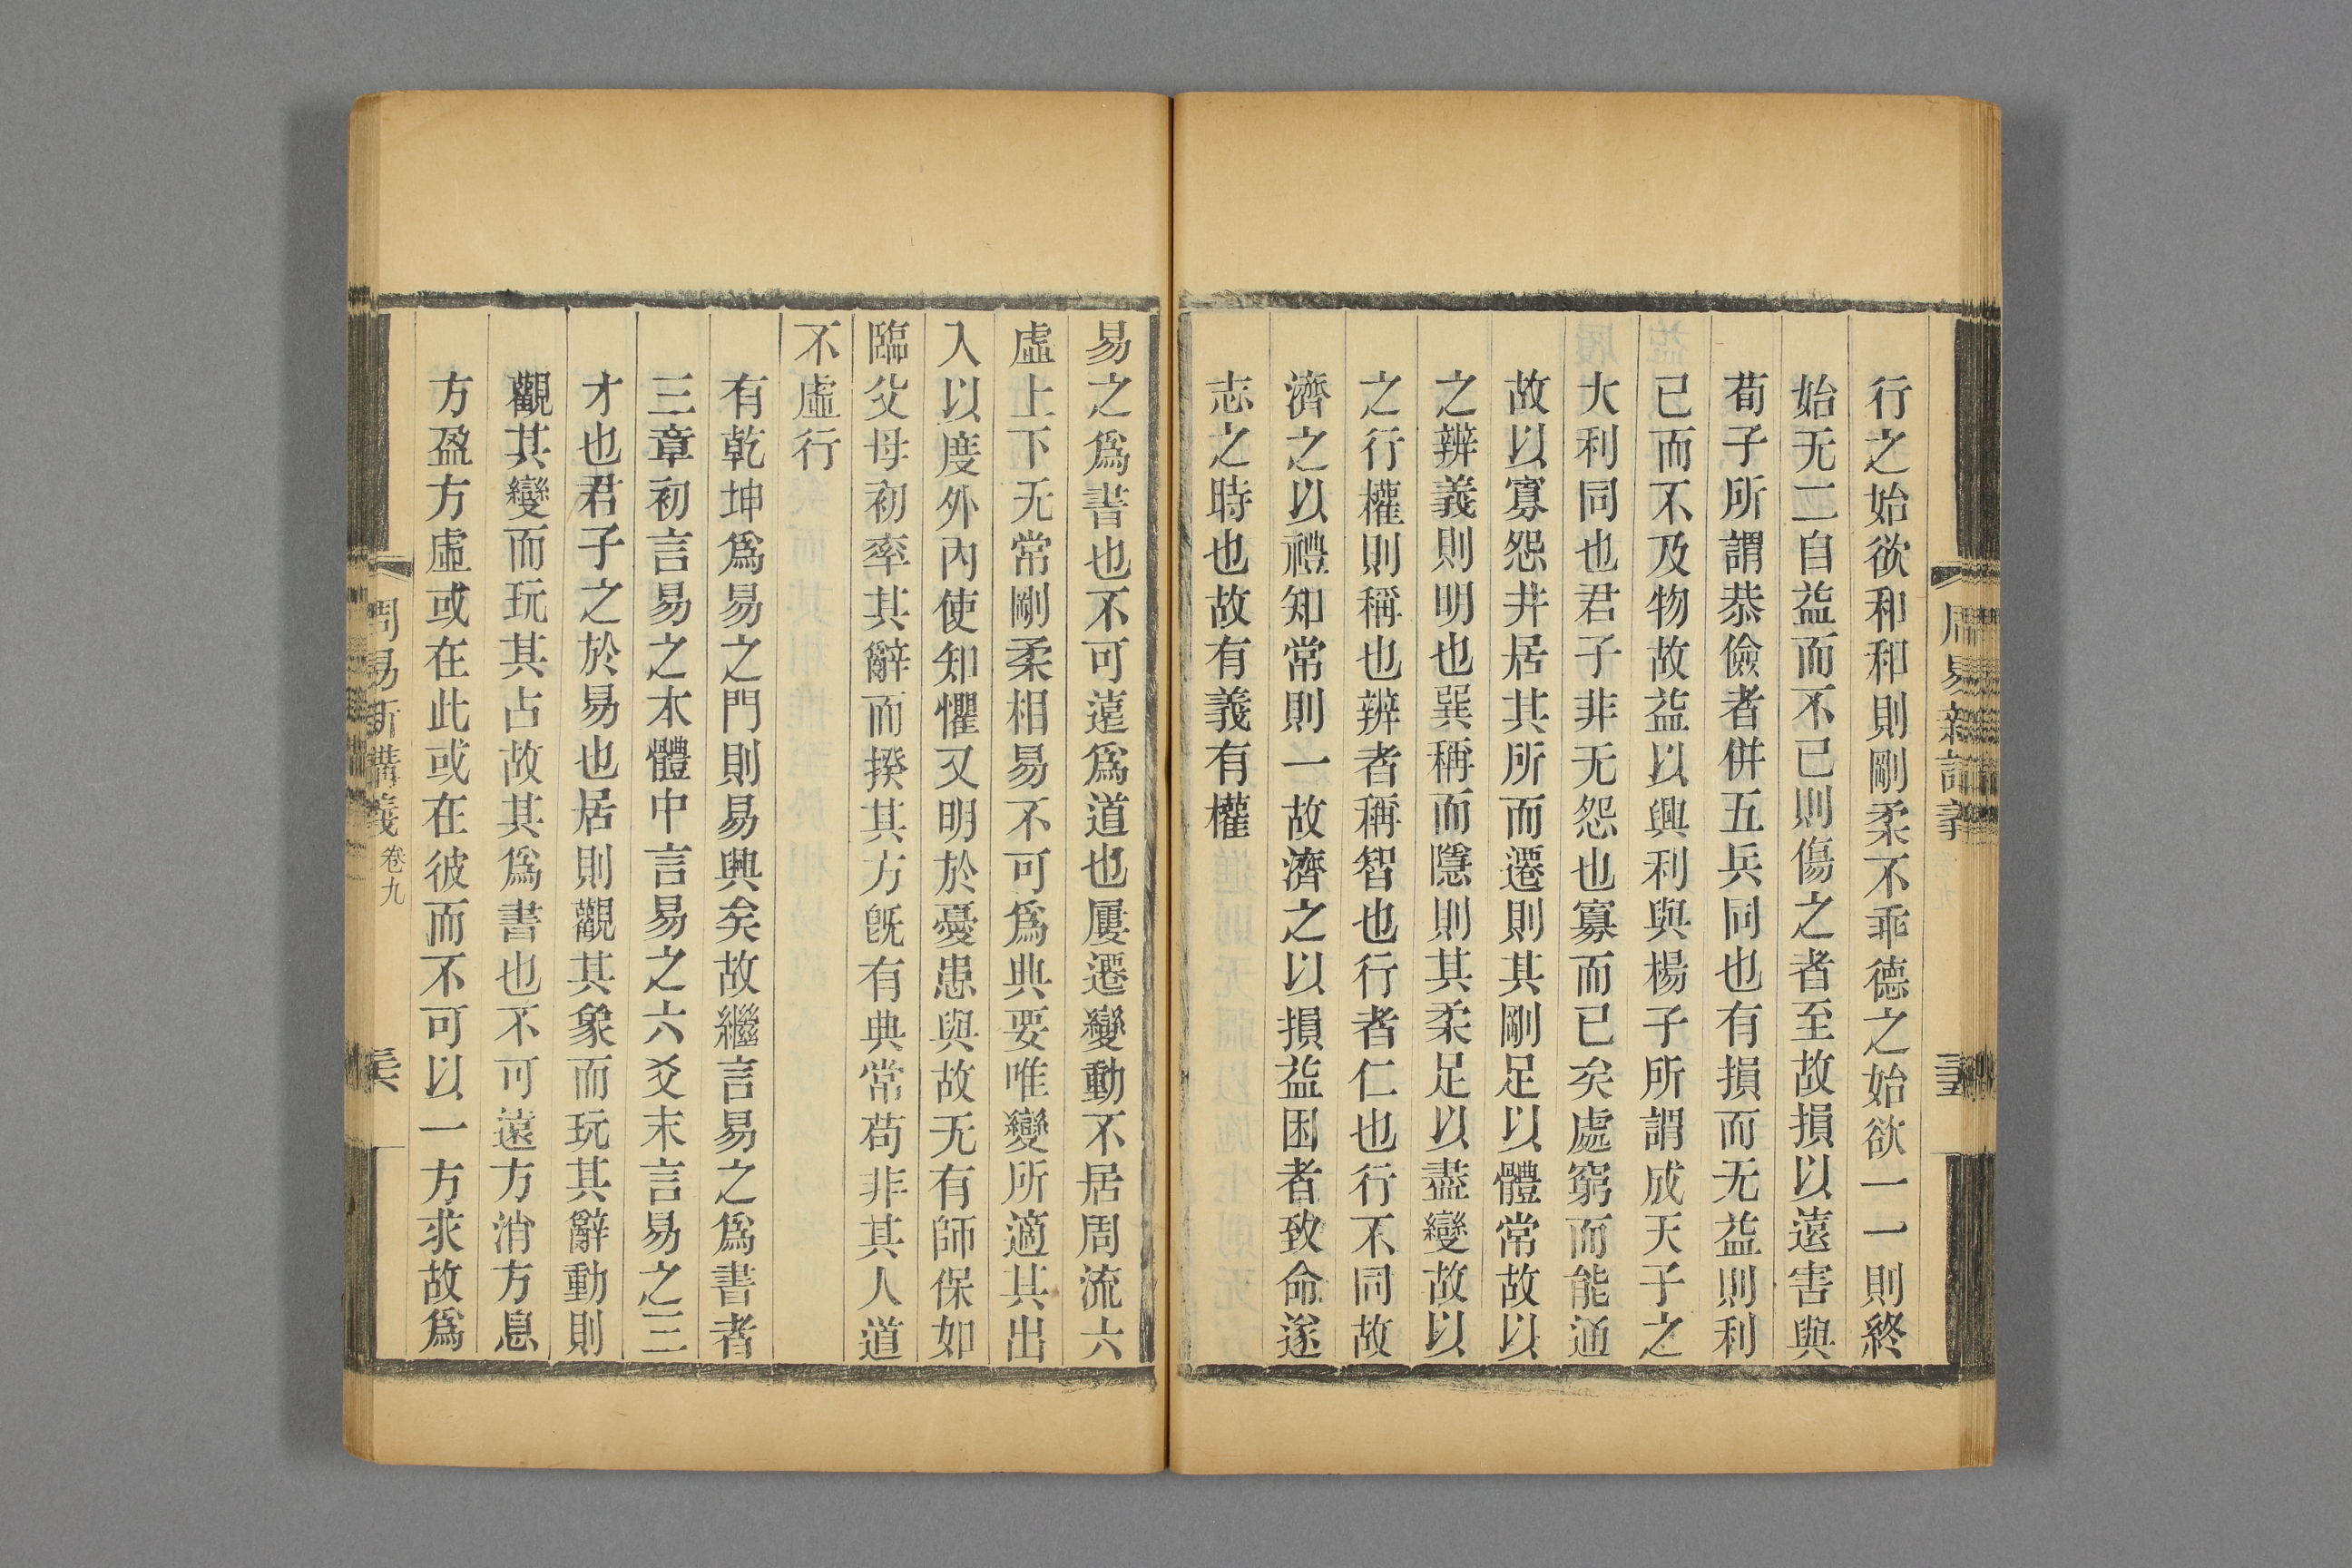 行之始欲和和則剛柔不乖德之始欲一一則終
始无二自益而不已則傷之者至故損以遠害與
荀子所謂恭儉者併五兵同也有損而无益則利
已而不及物故益以興利與楊子所謂成天子之
大利同也君子非无怨也寡而已矣處窮而能通
故以寡怨井居其所而遷則其剛足以體常故以
之辨義則明也巽稱而隱則其柔足以盡變故以
之行權則稱也辨者稱智也行者仁也行不同故
濟之以禮知常則一故濟之以損益困者致命遂
志之時也故有義有權
易之爲書也不可遠爲道也屢遷變動不居周流六
虛上下无常剛柔相易不可爲典要唯變所適其出
入以度外內使知懼又明於憂患與故无有師保如
臨父母初率其辭而揆其方旣有典常苟非其人道
不虛行
有乾坤爲易之門則易興矣故繼言易之爲書者
三章初言易之本體中言易之六爻末言易之三
才也君子之於易也居則觀其象而玩其辭動則
觀其變而玩其占故其爲書也不可遠方消方息
方盈方虛或在此或在彼而不可以一方求故爲
周易新講義 卷九